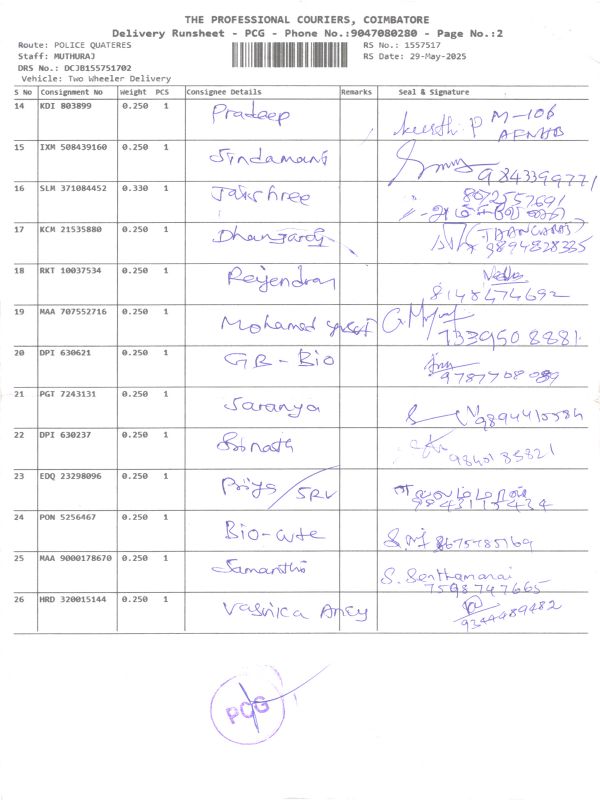 THE PROFESSIONAL COURIERS, COIMBATORE
Delivery Runsheet - PCG - Phone No.:9047080280 - Page No.:2
Route: POLICE QUATERES RS No.: 1557517
Staff: MUTHURAJ RS Date: 29-May-2025
DRS No.: DCJB155751702
Vehicle: Two Wheeler Delivery
S No Consignment No Weight PCS Consignee Details Remarks Seal & Signature
14 KDI 803899 0.250 1 Pradeep Keerthi P M-106
15 IXM 508439160 0.250 1 Sindamani 9843399771
16 SLM 371084452 0.330 1 Jaishree 8072557691
17 KCM 21535880 0.250 1 (THANGARAJ)
9894828335
18 RKT 10037534 0.250 1 Reijendran
8148474692
19 MAA 707552716 0.250 1 Mohamed
7339508881
20 DPI 630621 0.250 1 GB-Bio
9787708089
21 PGT 7243131 0.250 1 Saranya 9894410584
22 DPI 630237 0.250 1 Srinath
9840185821
23 EDQ 23298096 0.250 1 Priya / SRV
9843115434
24 PON 5256467 0.250 1 Bio-cute 8675785169
25 MAA 9000178670 0.250 1 Samantha S. Senthamarai
7598747665
26 HRD 320015144 0.250 1 Vasnica Ancy
9344489482
PCG